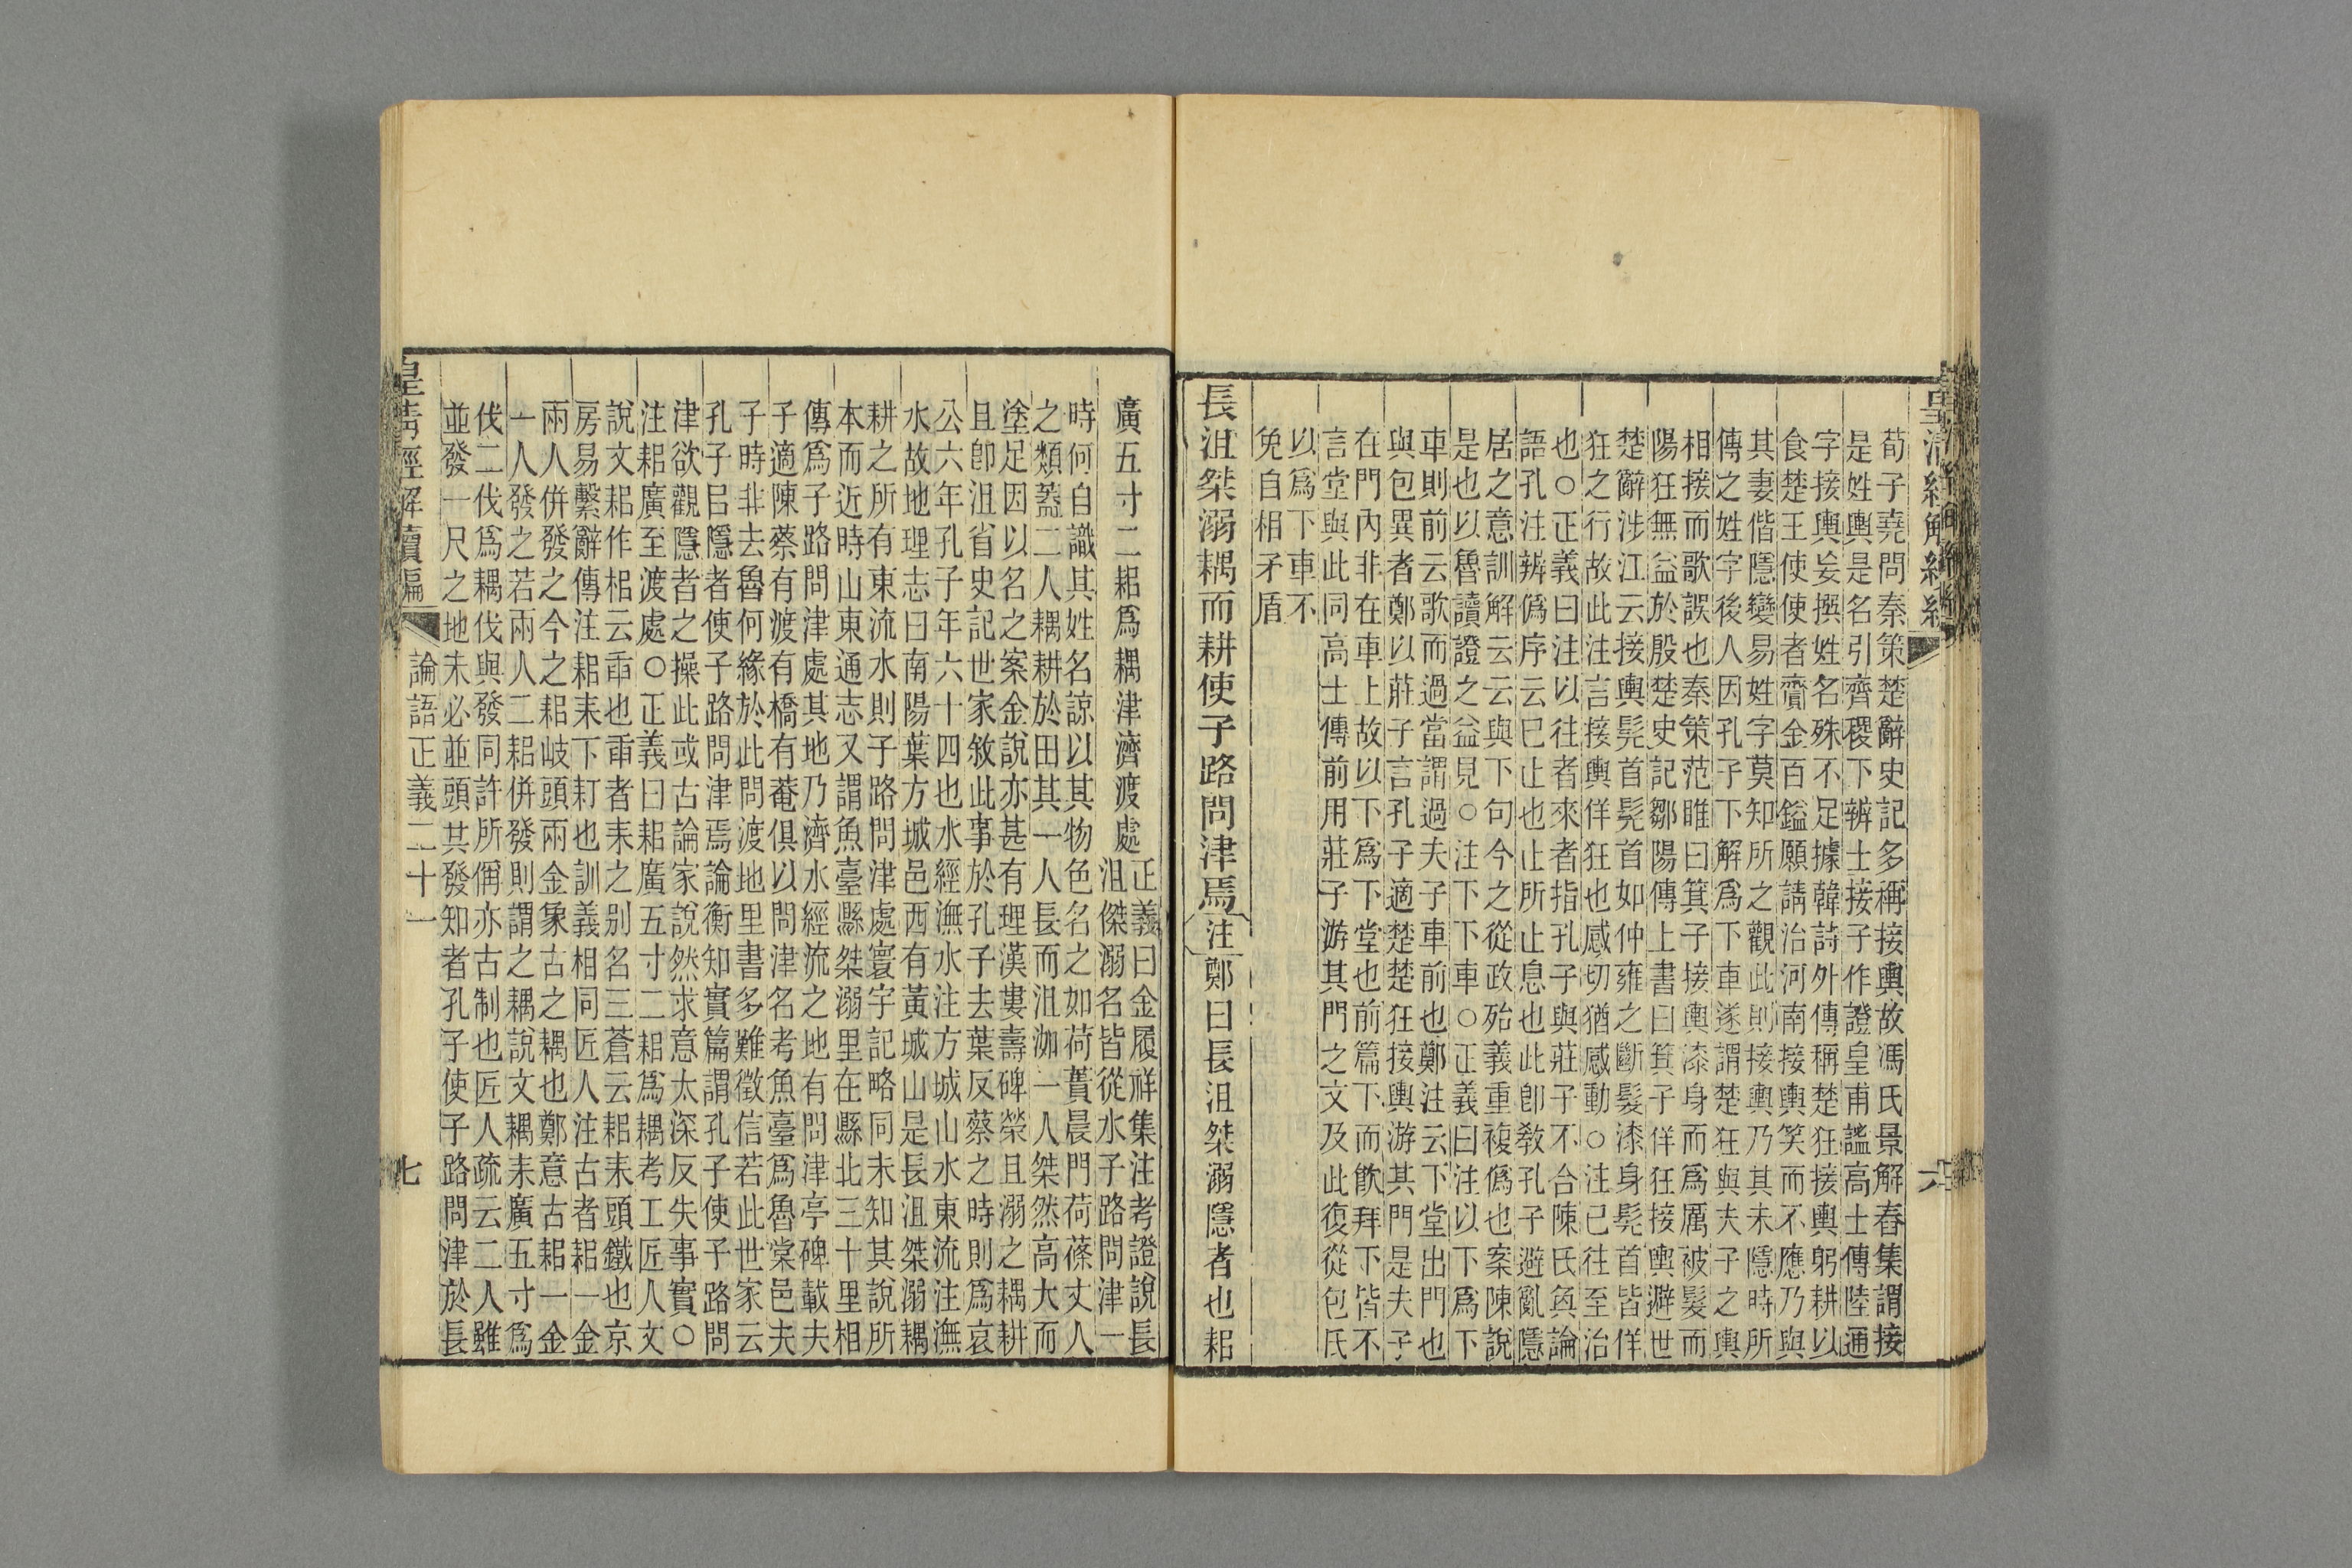 皇清經解續編 六
荀子堯問秦策楚辭史記多稱接輿故馮氏景解舂集謂接
是姓輿是名引齊稷下辨士接子作證皇甫謐高士傳陸通
字接輿妄撰姓名殊不足據韓詩外傳稱楚狂接輿躬耕以
食楚王使使者齎金百鎰願請治河南接輿笑而不應乃與
其妻偕隱變易姓字莫知所之觀此則接輿乃其未隱時所
傳之姓字後人因孔子下解爲下車遂謂楚狂與夫子之輿
相接而歌誤也秦策范睢曰箕子接輿漆身而爲厲被髮而
陽狂無益於殷楚史記鄒陽傳上書曰箕子佯狂接輿避世
楚辭涉江云接輿髡首髡首如仲雍之斷髮漆身髡首皆佯
狂之行故此注言接輿佯狂也感切猶感動○注已往至治
也○正義曰注以往者來者指孔子與莊子不合陳氏奐論
語孔注辨僞序云已止也止所止息也此卽敎孔子避亂隱
居之意訓解云云與下句今之從政殆義重複僞也案陳說
是也以魯讀證之益見○注下下車○正義曰注以下爲下
車則前云歌而過當謂過夫子車前也鄭注云下堂出門也
與包異者鄭以莊子言孔子適楚楚狂接輿游其門是夫子
在門內非在車上故以下爲下堂也前篇下而飮拜下皆不
言堂與此同高士傳前用莊子游其門之文及此復從包氏
以爲下車不
免自相矛盾
長沮桀溺耦而耕使子路問津焉注鄭曰長沮桀溺隱者也耜
廣五寸二耜爲耦津濟渡處
正義曰金履祥集注考證說長
沮傑溺名皆從水子路問津一
時何自識其姓名諒以其物色名之如荷蕢晨門荷蓧丈人
之類蓋二人耦耕於田其一人長而沮洳一人桀然高大而
塗足因以名之案金說亦甚有理漢婁壽碑榮且溺之耦耕
且卽沮省史記世家敘此事於孔子去葉反蔡之時則爲哀
公六年孔子年六十四也水經潕水注方城山水東流注潕
水故地理志曰南陽葉方城邑西有黃城山是長沮桀溺耦
耕之所有東流水則子路問津處寰宇記略同未知其說所
本而近時山東通志又謂魚臺縣桀溺里在縣北三十里相
傳爲子路問津處其地乃濟水經流之地有問津亭碑載夫
子適陳蔡有渡有橋有菴俱以問津名考魚臺爲魯棠邑夫
子時非去魯何緣於此問渡地里書多難徵信若此世家云
孔子㠯隱者使子路問津焉論衡知實篇謂孔子使子路問
津欲觀隱者之操此或古論家說然求意太深反失事實○
注耜廣至渡處○正義曰耜廣五寸二耜爲耦考工匠人文
說文耜作枱云耑也耑者耒之別名三蒼云耜耒頭鐵也京
房易繫辭傳注耜耒下耓也訓義相同匠人注古者耜一金
兩人併發之今之耜岐頭兩金象古之耦也鄭意古耜一金
一人發之若兩人二耜併發則謂之耦說文耦耒廣五寸爲
伐二伐爲耦伐與發同許所偁亦古制也匠人疏云二人雖
並發一尺之地未必並頭共發知者孔子使子路問津於長
皇清經解續編 論語正義二十一 七